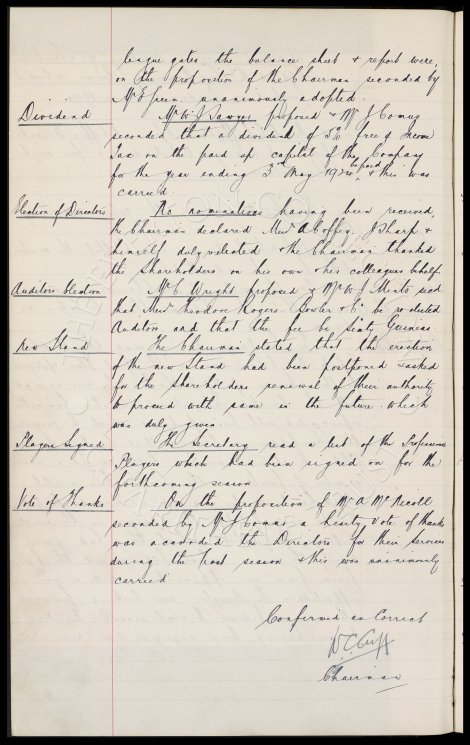 league gates, the balance sheet & report were,
on the proposition of the Chairman seconded by
Mr E Green unanimously adopted.
Dividend
Mr W J Sawyer proposed & Mr J Comus
seconded that a dividend of 5% free of Income
Tax on the paid up capital of the Company
for the year ending 3rd May 1924 be paid & this was
carried.
Election of Directors
No nominations having been received,
the Chairman declared Messrs A Coffey, J Sharp &
himself duly reelected & the Chairman thanked
the Shareholders on his own & his colleagues behalf
Auditors Election
Mr C Wright proposed & Mr W J secd
that Messrs Theodore Rogers. Bowler & Co be re elected
Auditors and that the fee be Sixty Guineas.
New Stand
The Chairman stated that the erection
of the new Stand had been postponed & asked
for the Shareholders renewal of their authority
to proceed with same in the future. which
was duly given.
Players Signed
The Secretary read a list of the Professional
Players which had been signed on for the
forthcoming season
Vote of Thanks
On the proposition of Mr A McNicoll
seconded by Mr J Comus a hearty vote of thanks
was accorded the Directors for their services
during the past season & this was unanimously
carried.
Confirmed as Correct
W.C. Cuff
Chairman